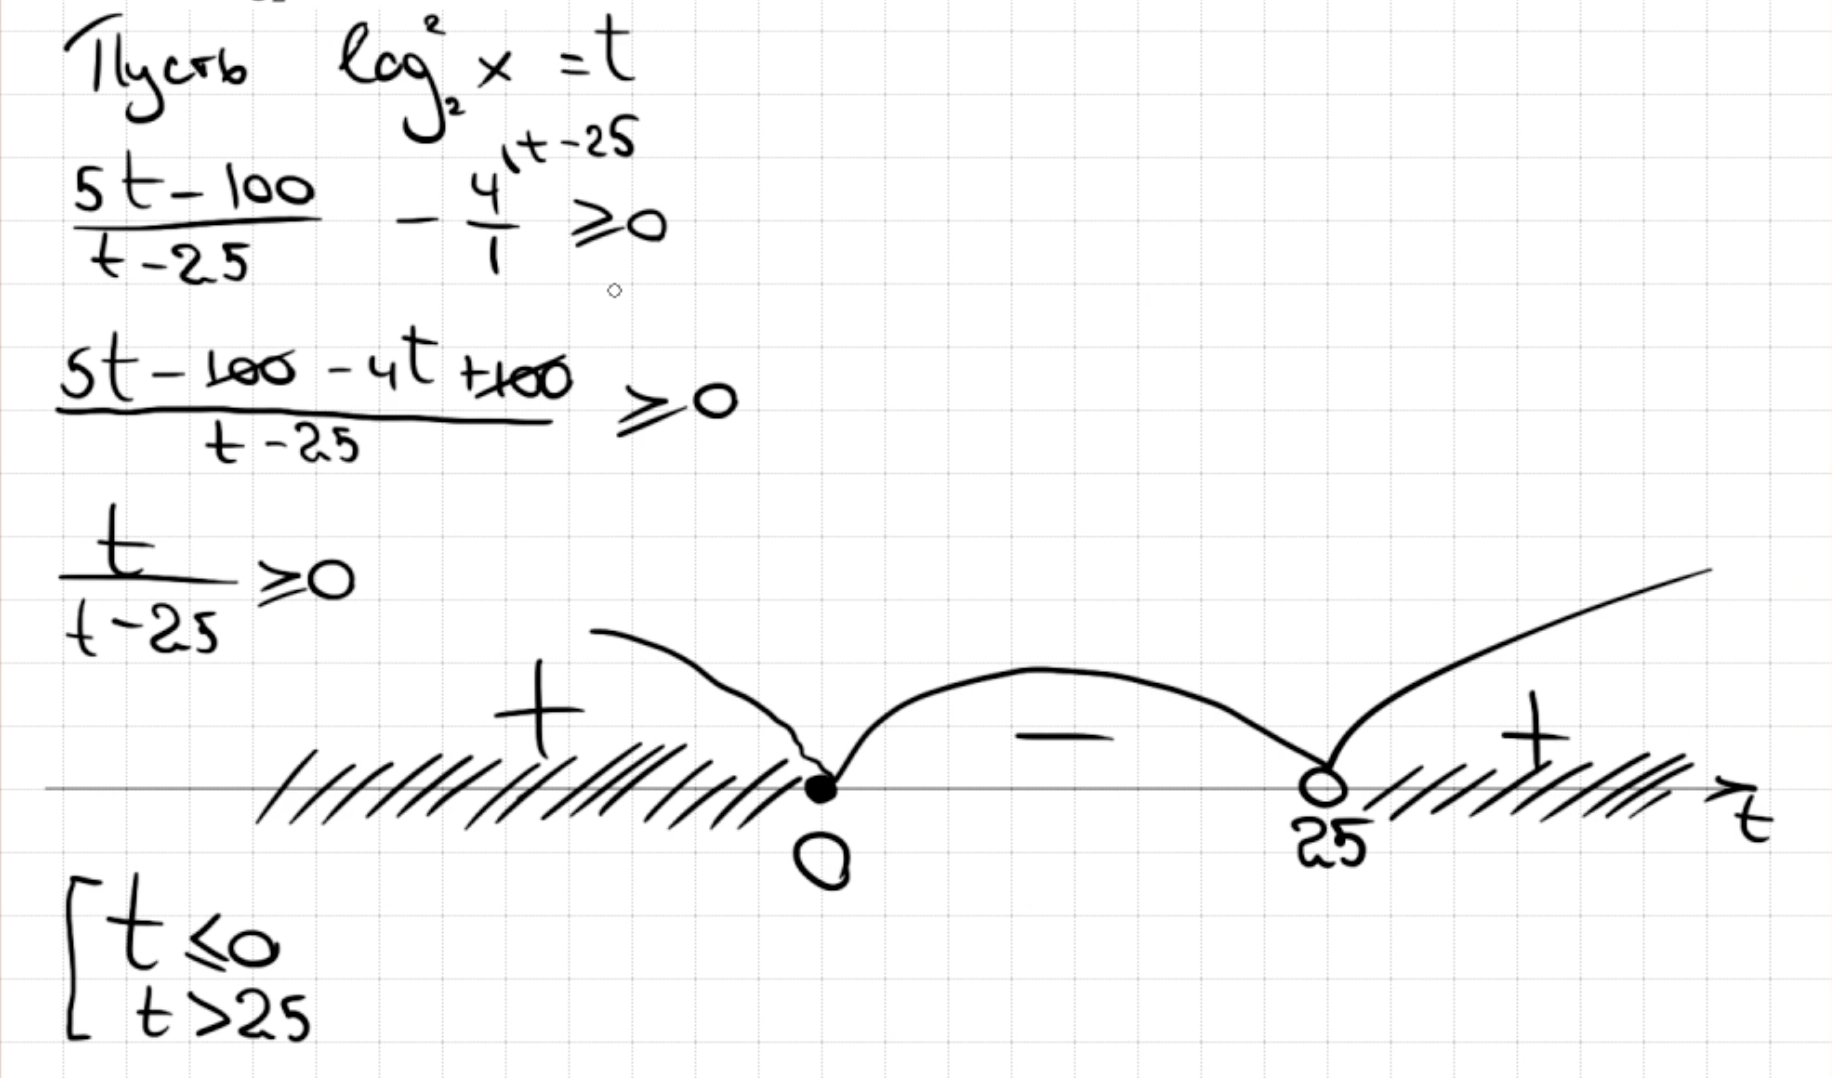 Пусть log₂² x = t
(5t - 100)/(t - 25) - 4/1 ^(t - 25) ≥ 0
(5t - 100 - 4t + 100)/(t - 25) ≥ 0
t/(t - 25) ≥ 0
+ − +
0 25 t
[ t ≤ 0
t > 25